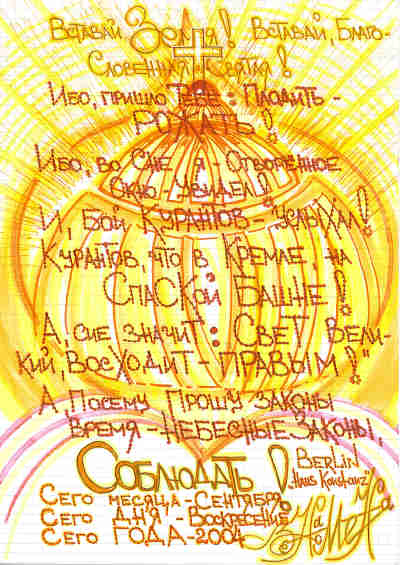 Вставай Земля! Вставай, Благо-
словенная и Святая!
Ибо, пришло Тебе: Плодить -
РОЖАТЬ!
Ибо, во Сне я - Отворённое
Окно - Увидел!
И, Бой Курантов - услыхал!
Курантов, что в Кремле на
Спаской Башне!
А, сие значит: Свет Вели-
кий, Восходит - ПРАВЫМ!"
А, Посему Прошу Законы
Время - Небесные Законы,
Соблюдать!
BERLIN
"Haus Konstanz"
Сего месяца - Сентябрь
Сего Дня - Воскресение
Сего ГОДА - 2004